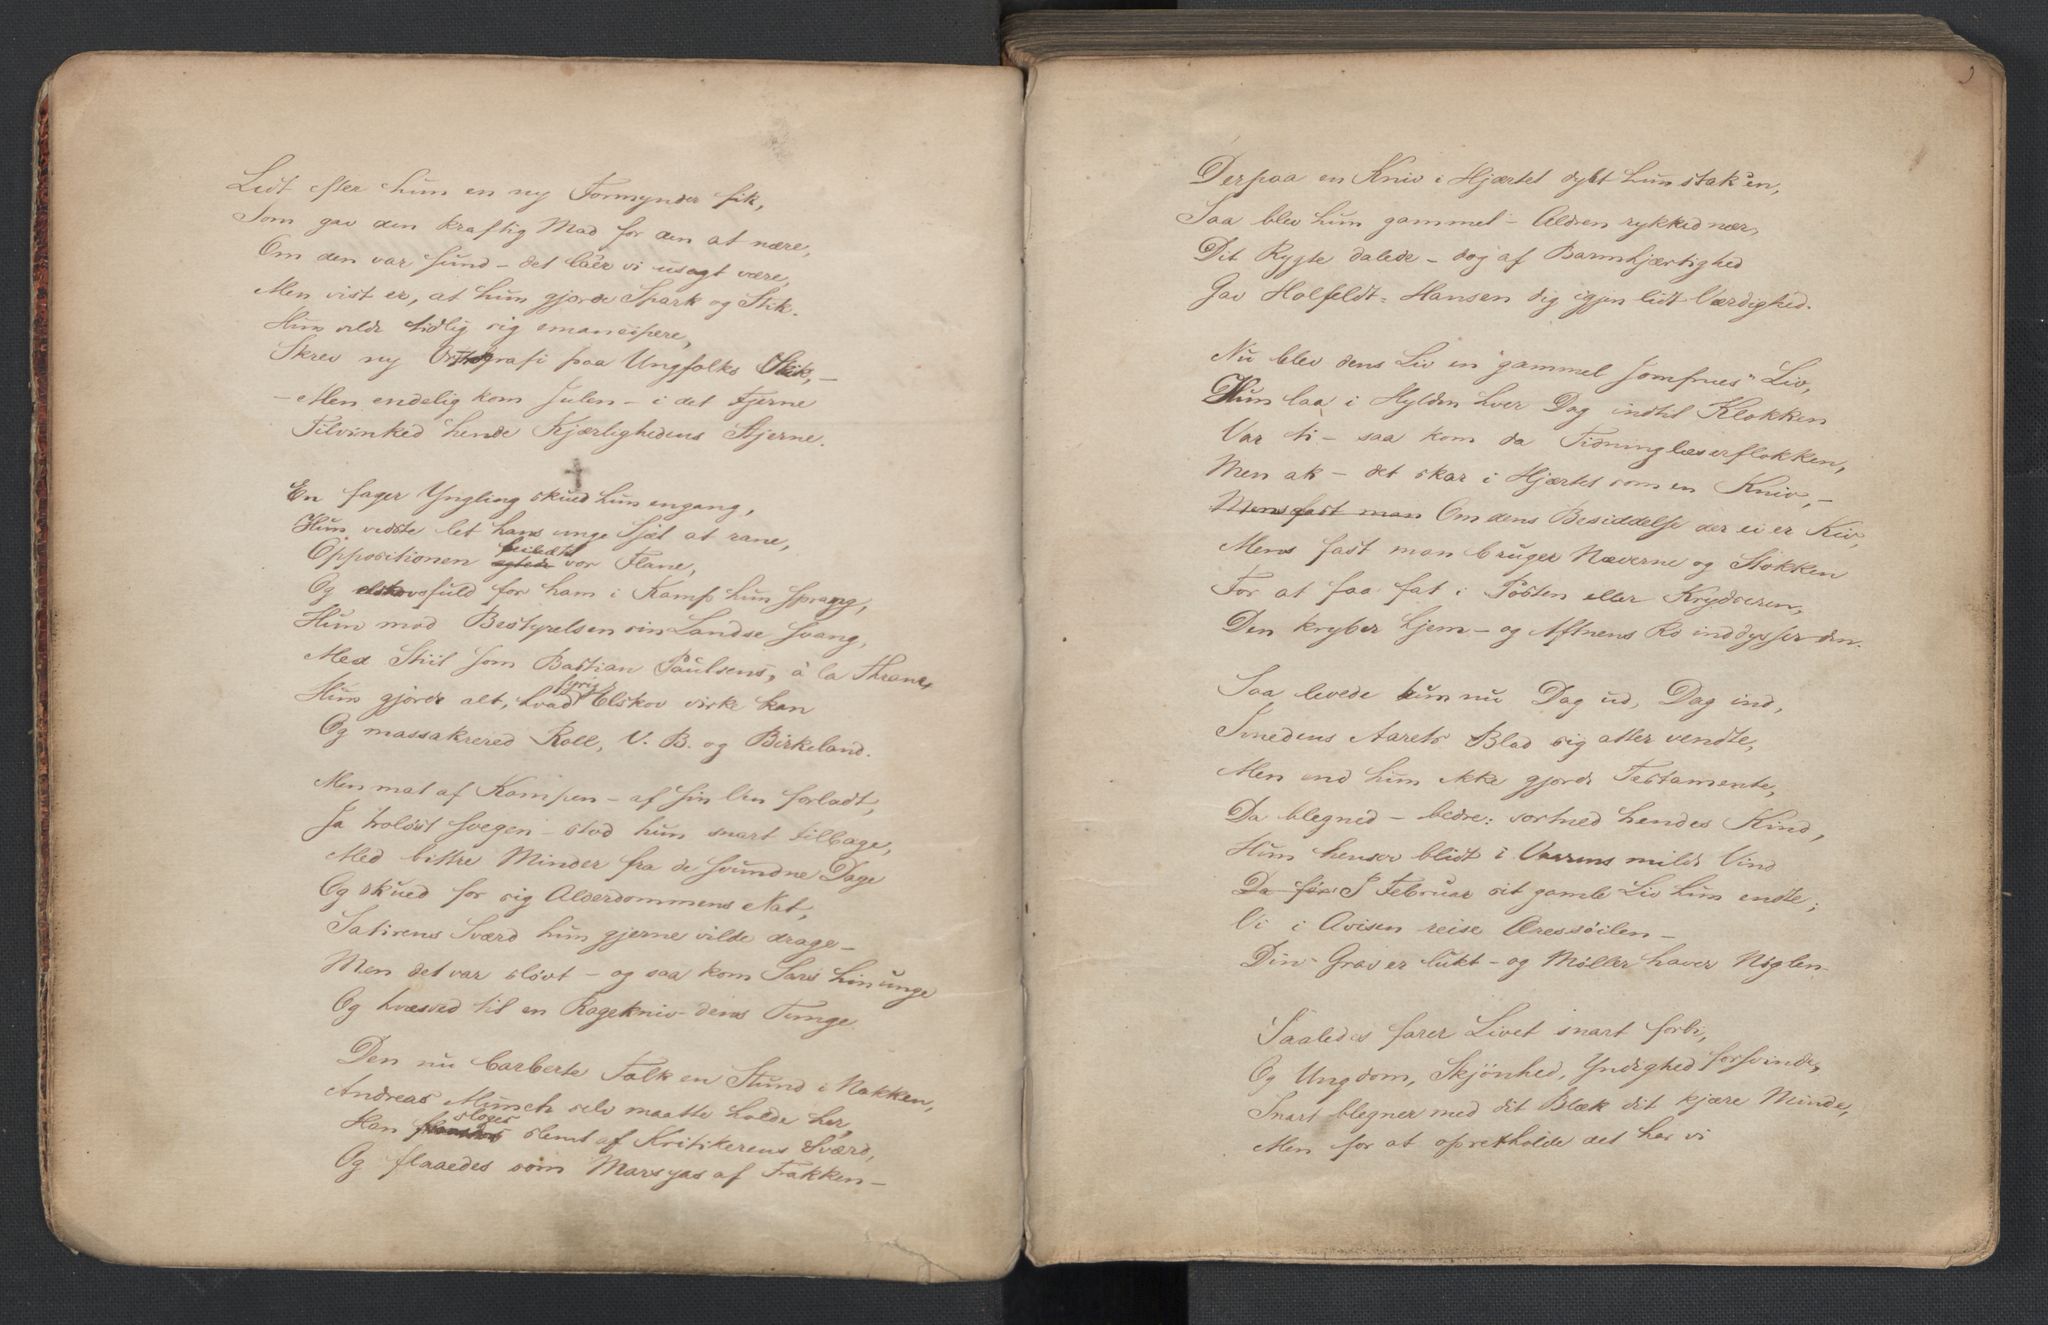 Lidt efter hun en ny Formynder fik,
Som gav den kraftig Mad for den at nære,
Om den var sund – det la'er vi usagt være,
Men vist er, at hun gjorde Spark og Stik.
Hun vilde tidlig sig emancipere,
Skrev ny Ortografi paa Ungfolks Skik, –
– Men endelig kom Julen – i det Fjerne
Tilvinked hende Kjærlighedens Stjerne.
En fager Yngling skued hun engang,
Hun vidste let hans unge Sjæl at rane,
Oppositionen beilædt vor Flane,
Og elskovsfuld for ham i Kamp hun sprang,
Hun mod Bestyrelsen sin Landse svang,
Med Stiil som Bastian Paulsens, à la Thrane,
Hun gjorde alt, hvad fyrig Elskov virke kan
Og massakrered Roll, V. B. og Birkeland.
Men mat af Kampen – af sin Ven forladt,
Ja troløst svegen – stod hun snart tilbage,
Med bittre Minder fra de svundne Dage
Og skued for sig Alderdommens Nat,
Satirens Sværd hun gjerne vilde drage –
Men det var sløvt – og saa kom Sars hin unge
Og hvæsved til en Ragekniv dens Tunge.
Den nu barberte Folk en Stund i Nakken,
Andreas Munch selv maatte holde her,
Han sloges slemt af Kritikerens Sværd,
Og flaaedes som Marsyas af Frakken –
2
Derpaa en Kniv i Hjærtet dybt hun stak'en,
Saa blev hun gammel – Aldren rykked nær,
Dit Rygte dalede – dog af Barmhjærtighed
Gav Holfeldt-Hansen dig igjen lidt Værdighed.
Nu blev dens Liv en "gammel Jomfrues" Liv,
Hun laa i Hylden hver Dag indtil Klokken
Var ti – saa kom da Tidninglæserflokken,
Men ak – det skar i Hjærtet som en Kniv, –
Mens fast man Om dens Besiddelse der ei er Kiv,
Mens fast man bruger Næverne og Stokken
For at faa fat i Posten eller Krydseren,
Den kryber hjem – og Aftnens Ro inddysser den.
Saa levede hun nu Dag ud, Dag ind,
Imedens Aarets Blad sig atter vendte,
Men end hun ikke gjorde Testamente,
Da blegned – bedre: sortned hendes Kind,
Hun henser blidt i Vaarens milde Vind
Da før I Februar sit gamle Liv hun endte;
Vi i Avisen reise Æressøilen –
Din Grav er lukt – og Møller haver Nøglen.
Saaledes farer Livet snart forbi,
Og Ungdom, Skjønhed, Yndighed forsvinde,
Snart blegner med dit Blæk dit kjære Minde,
Men for at opretholde det har vi